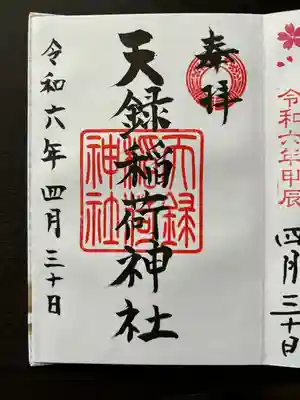 令和六年甲辰
四月三十日
奉拝
天録稲荷神社
天録稲荷神社
令和六年 四月三十日